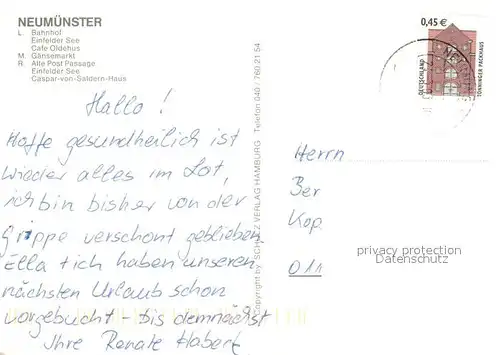 NEUMÜNSTER
L. Bahnhof
Einfelder See
Cafe Oldehus
M. Gänsemarkt
R. Alte Post Passage
Einfelder See
Caspar-von-Saldern-Haus
Hallo!
Hoffe gesundheitlich ist
wieder alles im Lot,
ich bin bisher von der
Grippe verschont geblieben
Ella + ich haben unseren
nächsten Urlaub schon
vorgebucht - bis demnächst
Ihre Renate Habert
Copyright by SCHÖLZ VERLAG HAMBURG Telefon 040 / 760 21 54
0,45 €
DEUTSCHLAND
TÖNNINGER PACKHAUS
Herrn
Ber
Kop
011
privacy protection
Datenschutz